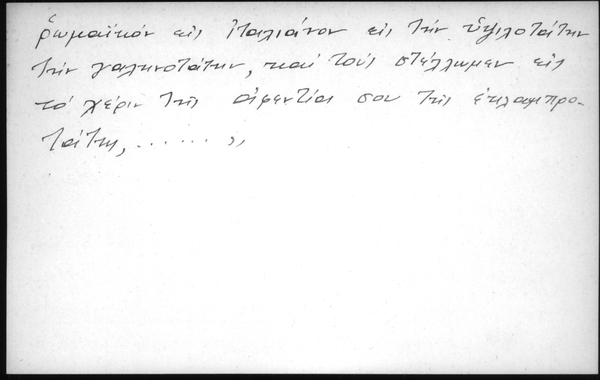 ῥωμαϊκόν εἰς ἰταλιάνον εἰς τήν ὑψιλοτάτην
τήν γαληνοτάτην, καί τούς στέλλωμεν εἰς
τό χέριν τῆς ἀφεντίας σου τῆς ἐκλαμπρο-
τάτης, ...... ,,